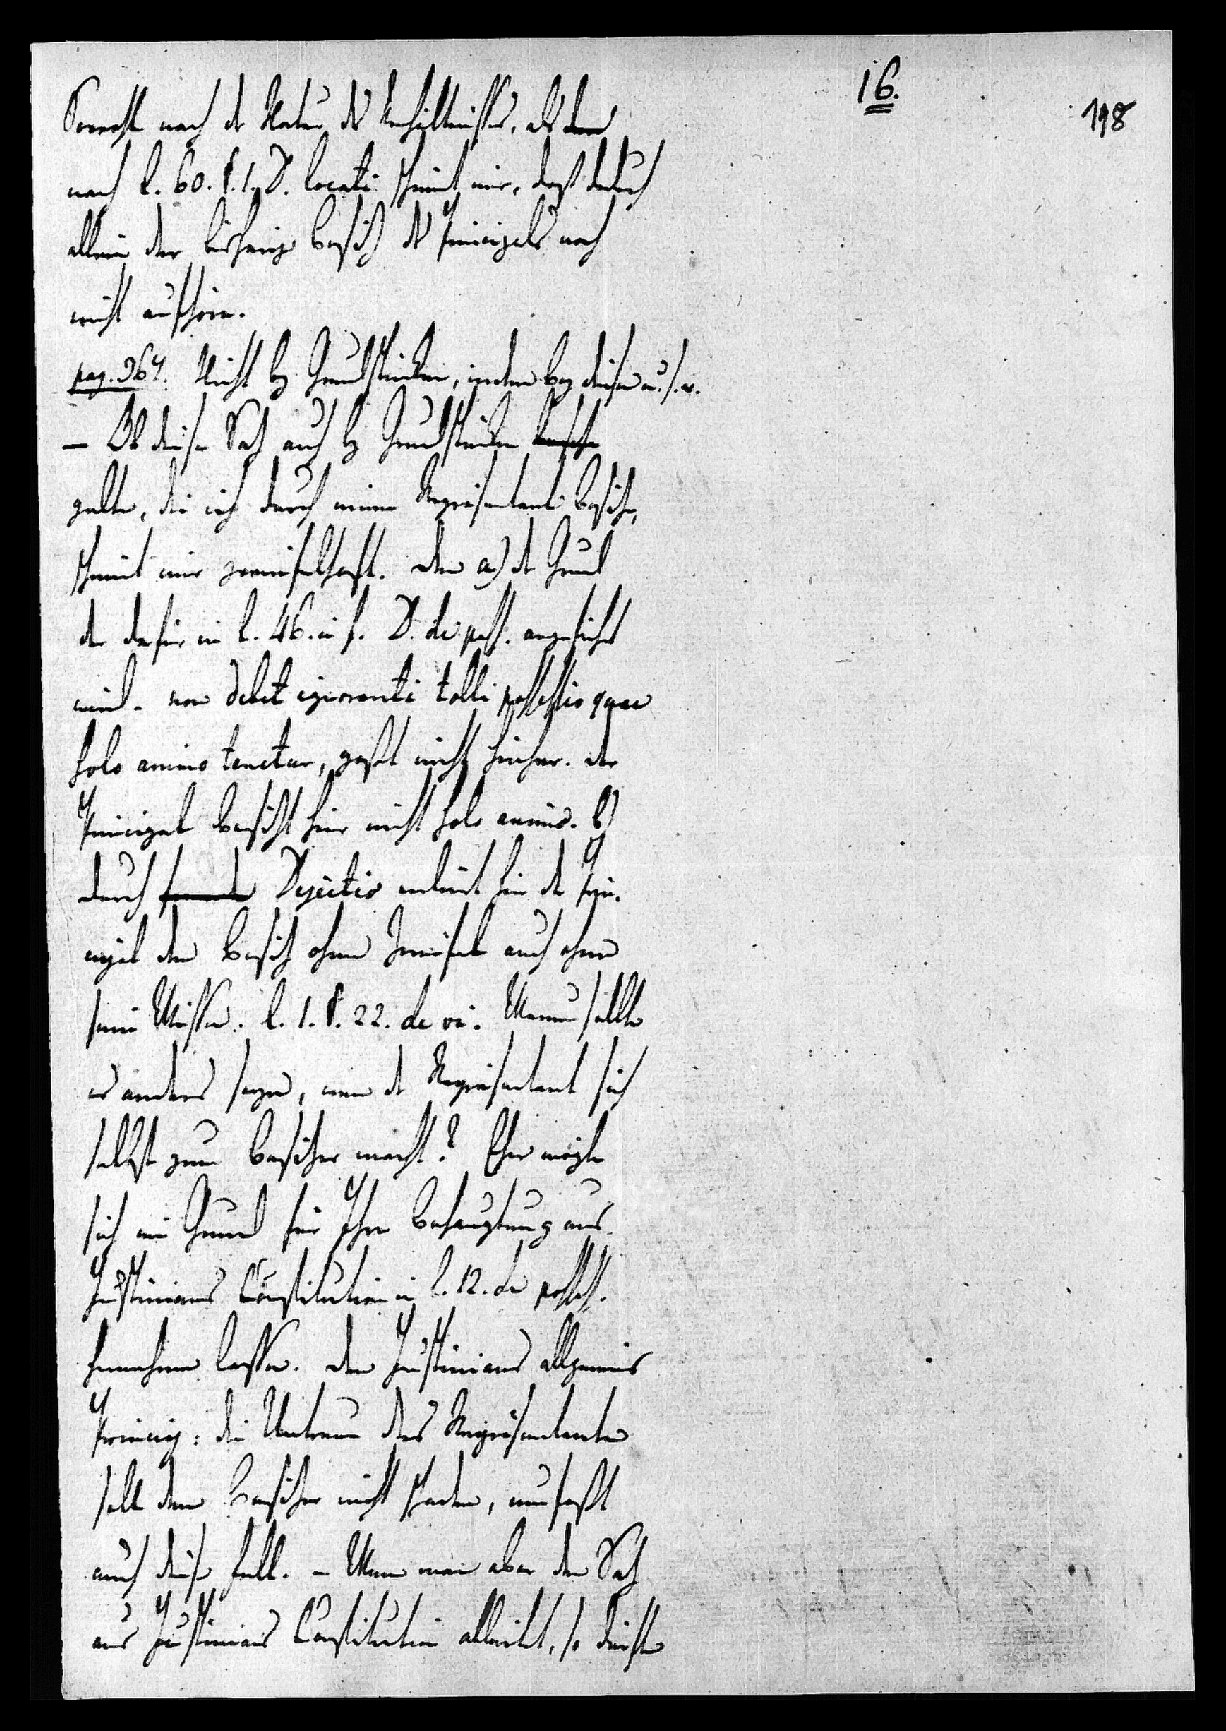 16.
198
Sowohl nach der Natur des Verhältnisses, als
nach l. 60. §. 1. D. locati scheint mir, daß dadurch
allein der bisherige Besitz des Principals noch
nicht aufhöre.
pag. 367. Nicht bey Grundstücken, indem bey diesen u. s. w.
– Ob dieser Satz auch bey Grundstücken
gelte, die ich durch meinen Repräsentanten besitze,
scheint mir zweifelhaft. Denn a) der Grund
der dafür in l. 46. in f. D. de poss. angeführt
wird. non debet ignoranti tolli possessio quae
solo animo tenetur, paßt nicht hierher. Der
Principal besitzt hier nicht solo animo. b)
durch Dejectio verliert hier der Prin-
cipal den Besitz ohne Zweifel auch ohne
sein Wissen. l. 1. §. 22. de vi. Warum sollte
es anders seyn, wenn der Repräsentant sich
selbst zum Besitzer macht? Eher möchte
sich ein Grund für Ihre Behauptung aus
Justinians Constitution in l. 12. de possess.
hernehmen lassen. Denn Justinians allgemeines
Princip: die Untreue des Repräsentanten
soll dem Besitzer nicht schaden, umfaßt
auch diesen Fall. – Wenn man aber den Satz
aus Justinians Constitution ableitet, so dürfte